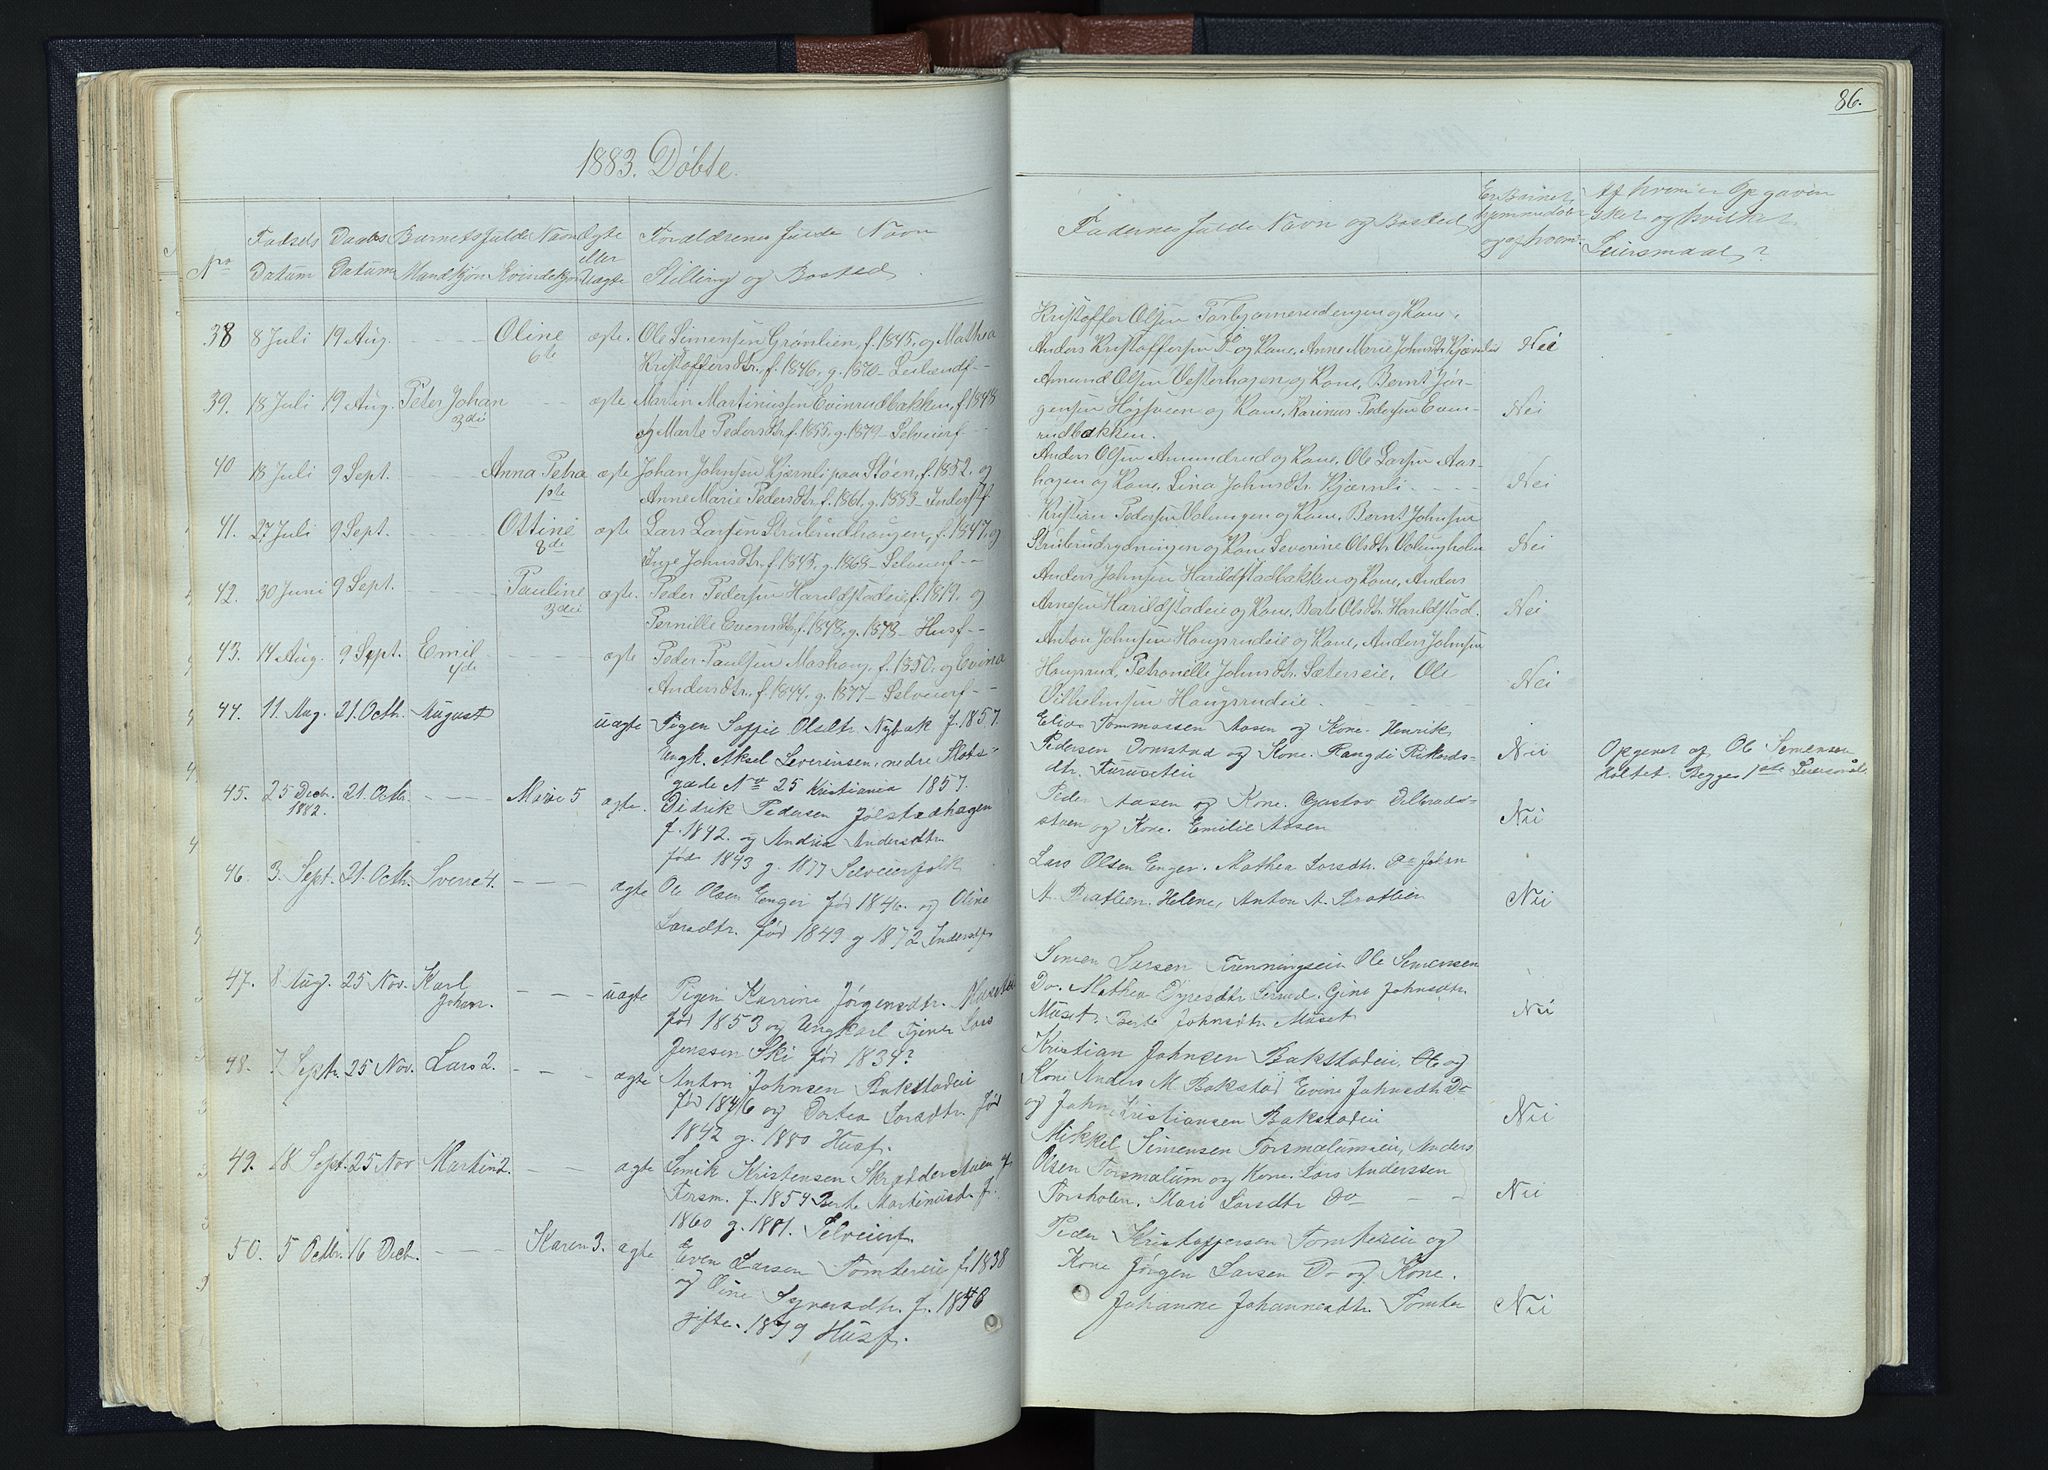 86.
1883. Døbte.
No
Fødsels Datum
Daabs Datum
Barnets fulde Navn
Mandkjøn
Kvindekjøn
Ægte eller Uægte
Forældrenes fulde Navn
Stilling og Bosted
Faddernes fulde Navn og Bosted
Er Barnet hjemmedøbt og af hvem
Af hvem er Opgaven sket og hvilket Leiersmaal?
38 8 Juli 19 Aug. Oline 6te ægte. Ole Simensen Grønlien, f. 1845, og Mathea
Kristoffersdtr. f. 1846, g. 1870 - Leilændf -
Kristoffer Olsen og Kone,
Anders Kristoffersen Do og Kone, Anne Marie Johnsdtr Kjærnli Nei
39. 18 Juli 19 Aug. Peter Johan 3die ægte Martin Martinussen Evenrudbakken, f. 1848
og Marte Pedersdtr. f. 1855, g. 1879 - Selveierf -
Amund Olsen Vesterhagen og Kone, Bernt Jør-
gensen og Kone, Karinus Pedersen Even-
rudbakken. Nei
40 18 Juli 9 Sept. Anna Petra 1ste ægte Johan Johnsen Kjærnli paa Støen, f. 1852. og
Anne Marie Pedersdtr, f. 1861, g. 1883 - Inderstf.
Anders Olsen Amundrud og Kone, Ole Larsen Aas-
hagen og Kone, Lina Johnsdtr Kjærnli Nei
41. 27 Juli 9 Sept. Ostine 8de ægte Lars Larsen Struberudhaugen, f. 1847, og
Inge Johnsdtr. f. 1845, g. 1868 - Selveierf -
Kristian Pedersen og Kone, Bernt Johnsen
og Kone Severine Olsdtr Nei
42. 30 Juni 9 Sept. Pauline 3die ægte. Peder Pedersen Harildstadeie, f. 1819. og
Pernille Evensdtr, f. 1848, g. 1873 - Husf -
Anders Johnsen Harildstadbakken og Kone, Anders
Arnesen Harildstadeie og Kone, Berte Olsdtr Harildstad. Nei
43. 14 Aug. 9 Sept. Emil 4de ægte Peder Paulsen Moshaug, f. 1850, og Evina
Andersdtr, f. 1844, g. 1877 - Selveierf -
Anton Johnsen Haugsrudeie og Kone, Anders Johnsen
Haugsrud, Petronelle Johnsdtr. Sæterseie, Ole
Vilhelmsen Haugsrudeie. Nei
44. 11 Aug. 21. Octb. August uægte Pigen Soffie Olsdtr. Nybak f. 1857.
Ungk. Aksel Severinsen, nedre Slots-
gade No 25 Kristiania 1857.
Elias Tommassen Aasen og Kone. Henrik
Pedersen Domstad og Kone. Rikards-
dtr. Furuseteie Nei
Opgivet af Ole Semensen
Holtet. Begges 1ste Leiersmål.
45. 25 Decb. 1882. 21. Octb. Marie 5 ægte. Didrik Pedersen Jølstadhagen
f. 1842. og Andrea Andersdtr.
født 1843 g. 1877 Selveierfolk
Peder Aasen og Kone. Gustav
og Kone. Emilie Aasen Nei
46. 3. Sept. 21. Octb. Sverre 4. ægte Ole Olsen Enger før 1846. og Oline
Larsdtr. før 1849 g 1872 Inderstf.
Lars Olsen Enger. Mathea Larsdtr. Do Johan
A. Bratlien. Helene, Anton A. Bratlien Nei
47. 8 Aug. 25 Nov. Karl Johan. uægte Pigen Karrine Jørgensdtr.
før 1853 og Ungkarl Tjener Lars
Jenssen Ski før 1834?
Simen Larsen Ole Semensen
Do. Mathea Gina Johnsdtr.
Muset. Berte Johnsdtr. Muset Nei
48. 7 Septr. 25 Nov. Lars 2. ægte Anton Johnsen Bakstadeie
før 1846 og Dortea Larsdtr. før
1842 g. 1880 Husf.
Kristian Johnsen Bakstadeie, og
Kone Anders M. Bakstad Evine Johnsdtr. Do
og John Kristiansen Bakstadeie Nei
49. 18 Sept. 25 Nov Martin 2. ægte Kristensen f
Forsm. f. 1854 Berte Martinusd. f.
1860 g. 1881. Selveierf.
Mikkel Simensen Forsmælumeie, Anders
Olsen Forsmælum og Kone. Lars Anderssen
Forsholen. Mari Larsdtr Do Nei
50. 5 Octbr. 16 Decb. Karen 3. ægte Even Larsen Tomtereie f. 1838
og Oline Syversdtr. f. 1848
gifte. 1879 Husf.
Peder Kristoffersen Tomtereie og
Kone Jørgen Larsen Do og Kone.
Johanne Johannesdtr. Tomter Nei